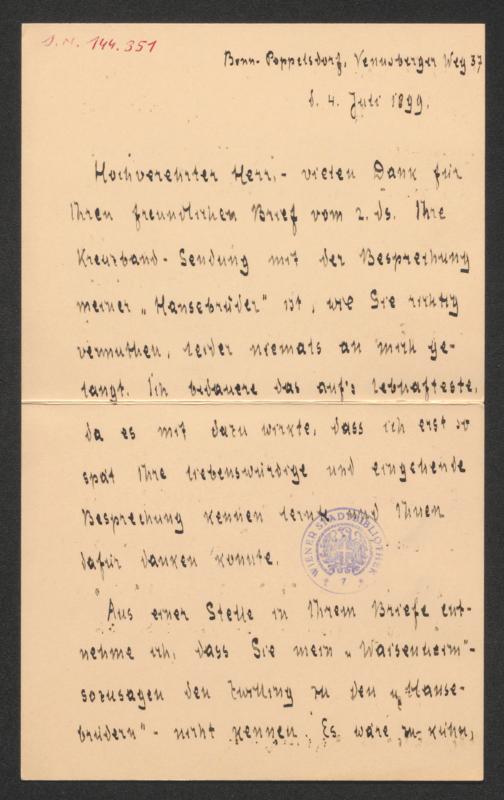 J.N. 144.351
Bonn-Poppelsdorf, Venusberger Weg 37
d. 4. Juli 1899.
Hochverehrter Herr, - vielen Dank für
Ihren freundlichen Brief vom 2. ds. Ihre
Kreuzband-Sendung mit der Besprechung
meiner „Hansebrüder" ist, wie Sie richtig
vermuthen, leider niemals an mich ge-
langt. Ich bedauere das auf's lebhafteste,
da es mit dazu wirkte, dass ich erst so
spät Ihre liebenswürdige und eingehende
Besprechung kennen lernte und Ihnen
dafür danken konnte.
WIENER STADTBIBLIOTHEK
Aus einer Stelle in Ihrem Briefe ent-
nehme ich, dass Sie mein „Waisenheim"-
sozusagen den Zwilling zu den „Hanse-
brüdern" - nicht kennen. Es wäre zu kühn,